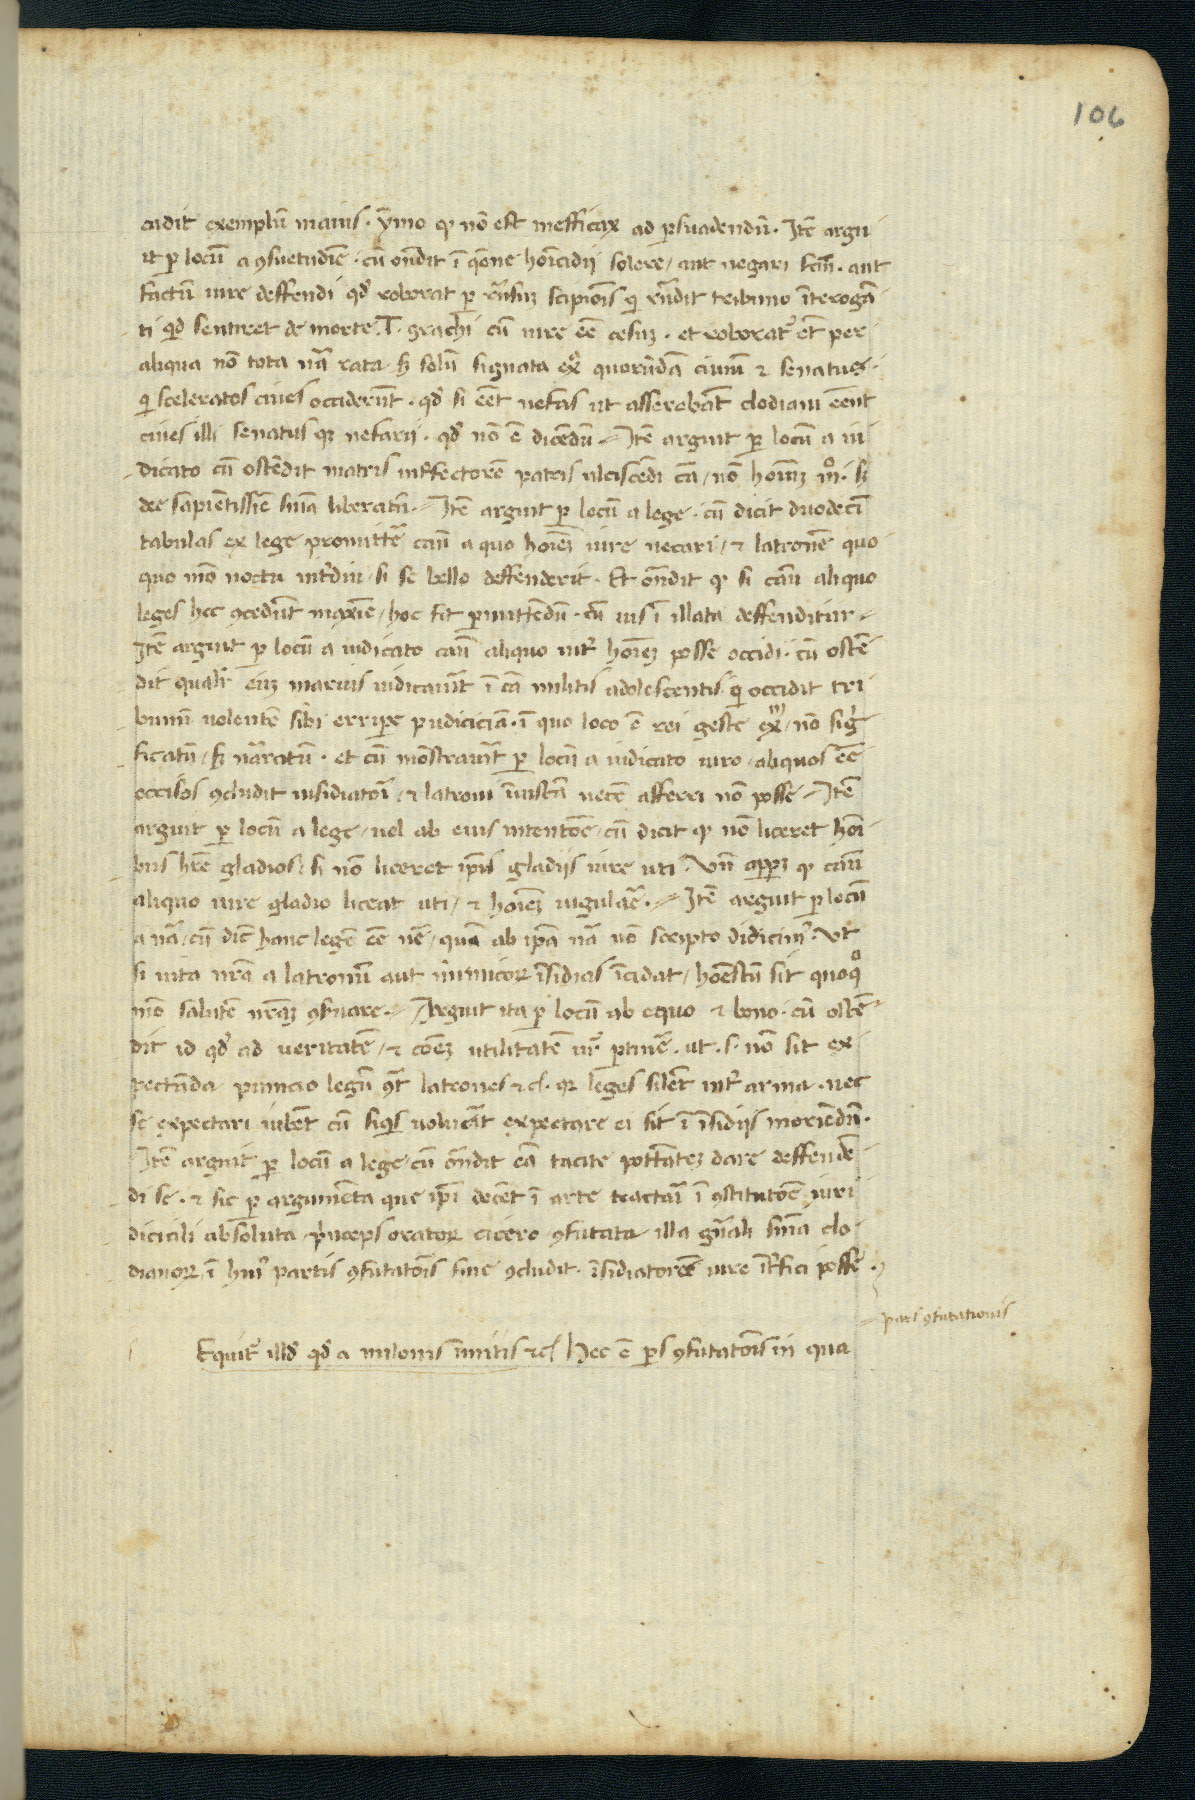 106
cadit exemplũ maius · ymo qɜ nõ est inefficax ad ꝑsuadendũ · Itẽ argu
it ꝑ locũ a ꝯsuetudĩe · cũ oñdit ĩ qõne homicidij solere / aut negari fcm̃ · aut
factũ iure deffendi qđ roborat ꝑ rñsuȝ scipiois qi rñdit tribuno ĩterogã
ti qđ sentiret de morte T · grachi cũ iure ẽẽ cesuȝ · et roborat᷑ et̃ per
aliqua nõ tota nãrata sȝ solũ signata exa quorũdã ciuiũ ⁊ senatus ·
qi sceleratos ciues occiderũt · qđ si eẽt nefas ut asserebãt clodiani eẽnt
ciues illi senatus qȝ nefarij · qđ nõ ẽ dicẽdũ Itẽ arguit ꝑ locũ a iu
dicato cũ ostẽdit matris infectorẽ patris ulciscẽdi cã / nõ hoĩuȝ mo · sȝ
dee sapientissĩe sñia liberatũ Itẽ arguit ꝑ locũ a lege · cũ dicit duodecĩ
tabulas ex lege promittẽ cãũ a quo hoieȝ iure necari / ⁊ latronẽ quo
quo mõ noctu intdiu si se bello deffenderit · Et oñdit qɜ si cãũ aliquo
leges hec ꝯcedũt maxĩe / hoc sit ꝑmittẽdũ · cũ uis ĩ illata deffenditur
Itẽ arguit ꝑ locũ a iudicato cãũ aliquo iur̃ hoieȝ posse occidi · cũ ostẽ
dit qualr̃ eiuȝ marius iudicauit ĩ cã militis adolescentis qi occidit tri
bunũ uolentẽ sibi erripe pudiciciã · ĩ quo loco ẽ rei geste exm / nõ sigi
ficatũ / sȝ narratũ · et cũ mõstrauit ꝑ locũ a iudicato iuro / aliquos eẽ
occisos ꝯcludit insidiatori / ⁊ latroni ĩiustã necẽ afferri nõ posse Itẽ
arguit ꝑ locũ a lege / uel ab eius intentõe / cũ dicit qɜ nõ liceret hoi
bus hr̃e gladios / si nõ liceret ipis gladijs iure uti · vñ apparȝ qɜ cãũ
aliquo iure gladio liceat uti / ⁊ hoieȝ iugulaẽ Itẽ arguit ꝑ locũ
a nã / cũ dic̃ hanc legẽ eẽ nr̃ẽ / quã ab ip̃a nã nõ scripto didicimꝰ · vt
si uita nr̃a a latronũ aut inimicoꝝ ĩsidias ĩcidat / honestũ sit quoqo
mõ salutẽ nr̃aȝ ꝯseruare Arguit ita ꝑ locũ ab equo ⁊ bono · cũ ostẽ
dit id qđ ad ueritatẽ / ⁊ coẽȝ utilitatẽ ur̃ ꝑtinẽ · ut · s · nõ sit ex
pectãda punicio legũ ꝯtͣ latrones ⁊c̃ · qȝ leges silẽt int arma · nec
se expectari iubẽt cũ siqis uoluerit expectare ei sit ĩ ĩsidijs moriẽdũ ·
Itẽ arguit ꝑ locũ a lege cũ oñdit eã tacite potẽtateȝ dare deffendẽ
di se · ⁊ sic ꝑ argumẽta que ip̃i decẽt ĩ arte tractari ĩ ꝯstitutõe iuri
diciali absoluta p̃nceps oratoꝝ cicero ꝯfutata illa gñali sñia clo
dianoꝝ / ĩ huiꝰ partis ꝯfutatõis fine ꝯcludit · ĩsidiatorẽ iure ĩtfici posse ·
pars ꝯfutationis
Equit᷑ illđ qđ a milonis ĩimicis ⁊c̃ Hec ẽ ꝑs ꝯfutatõis in qua